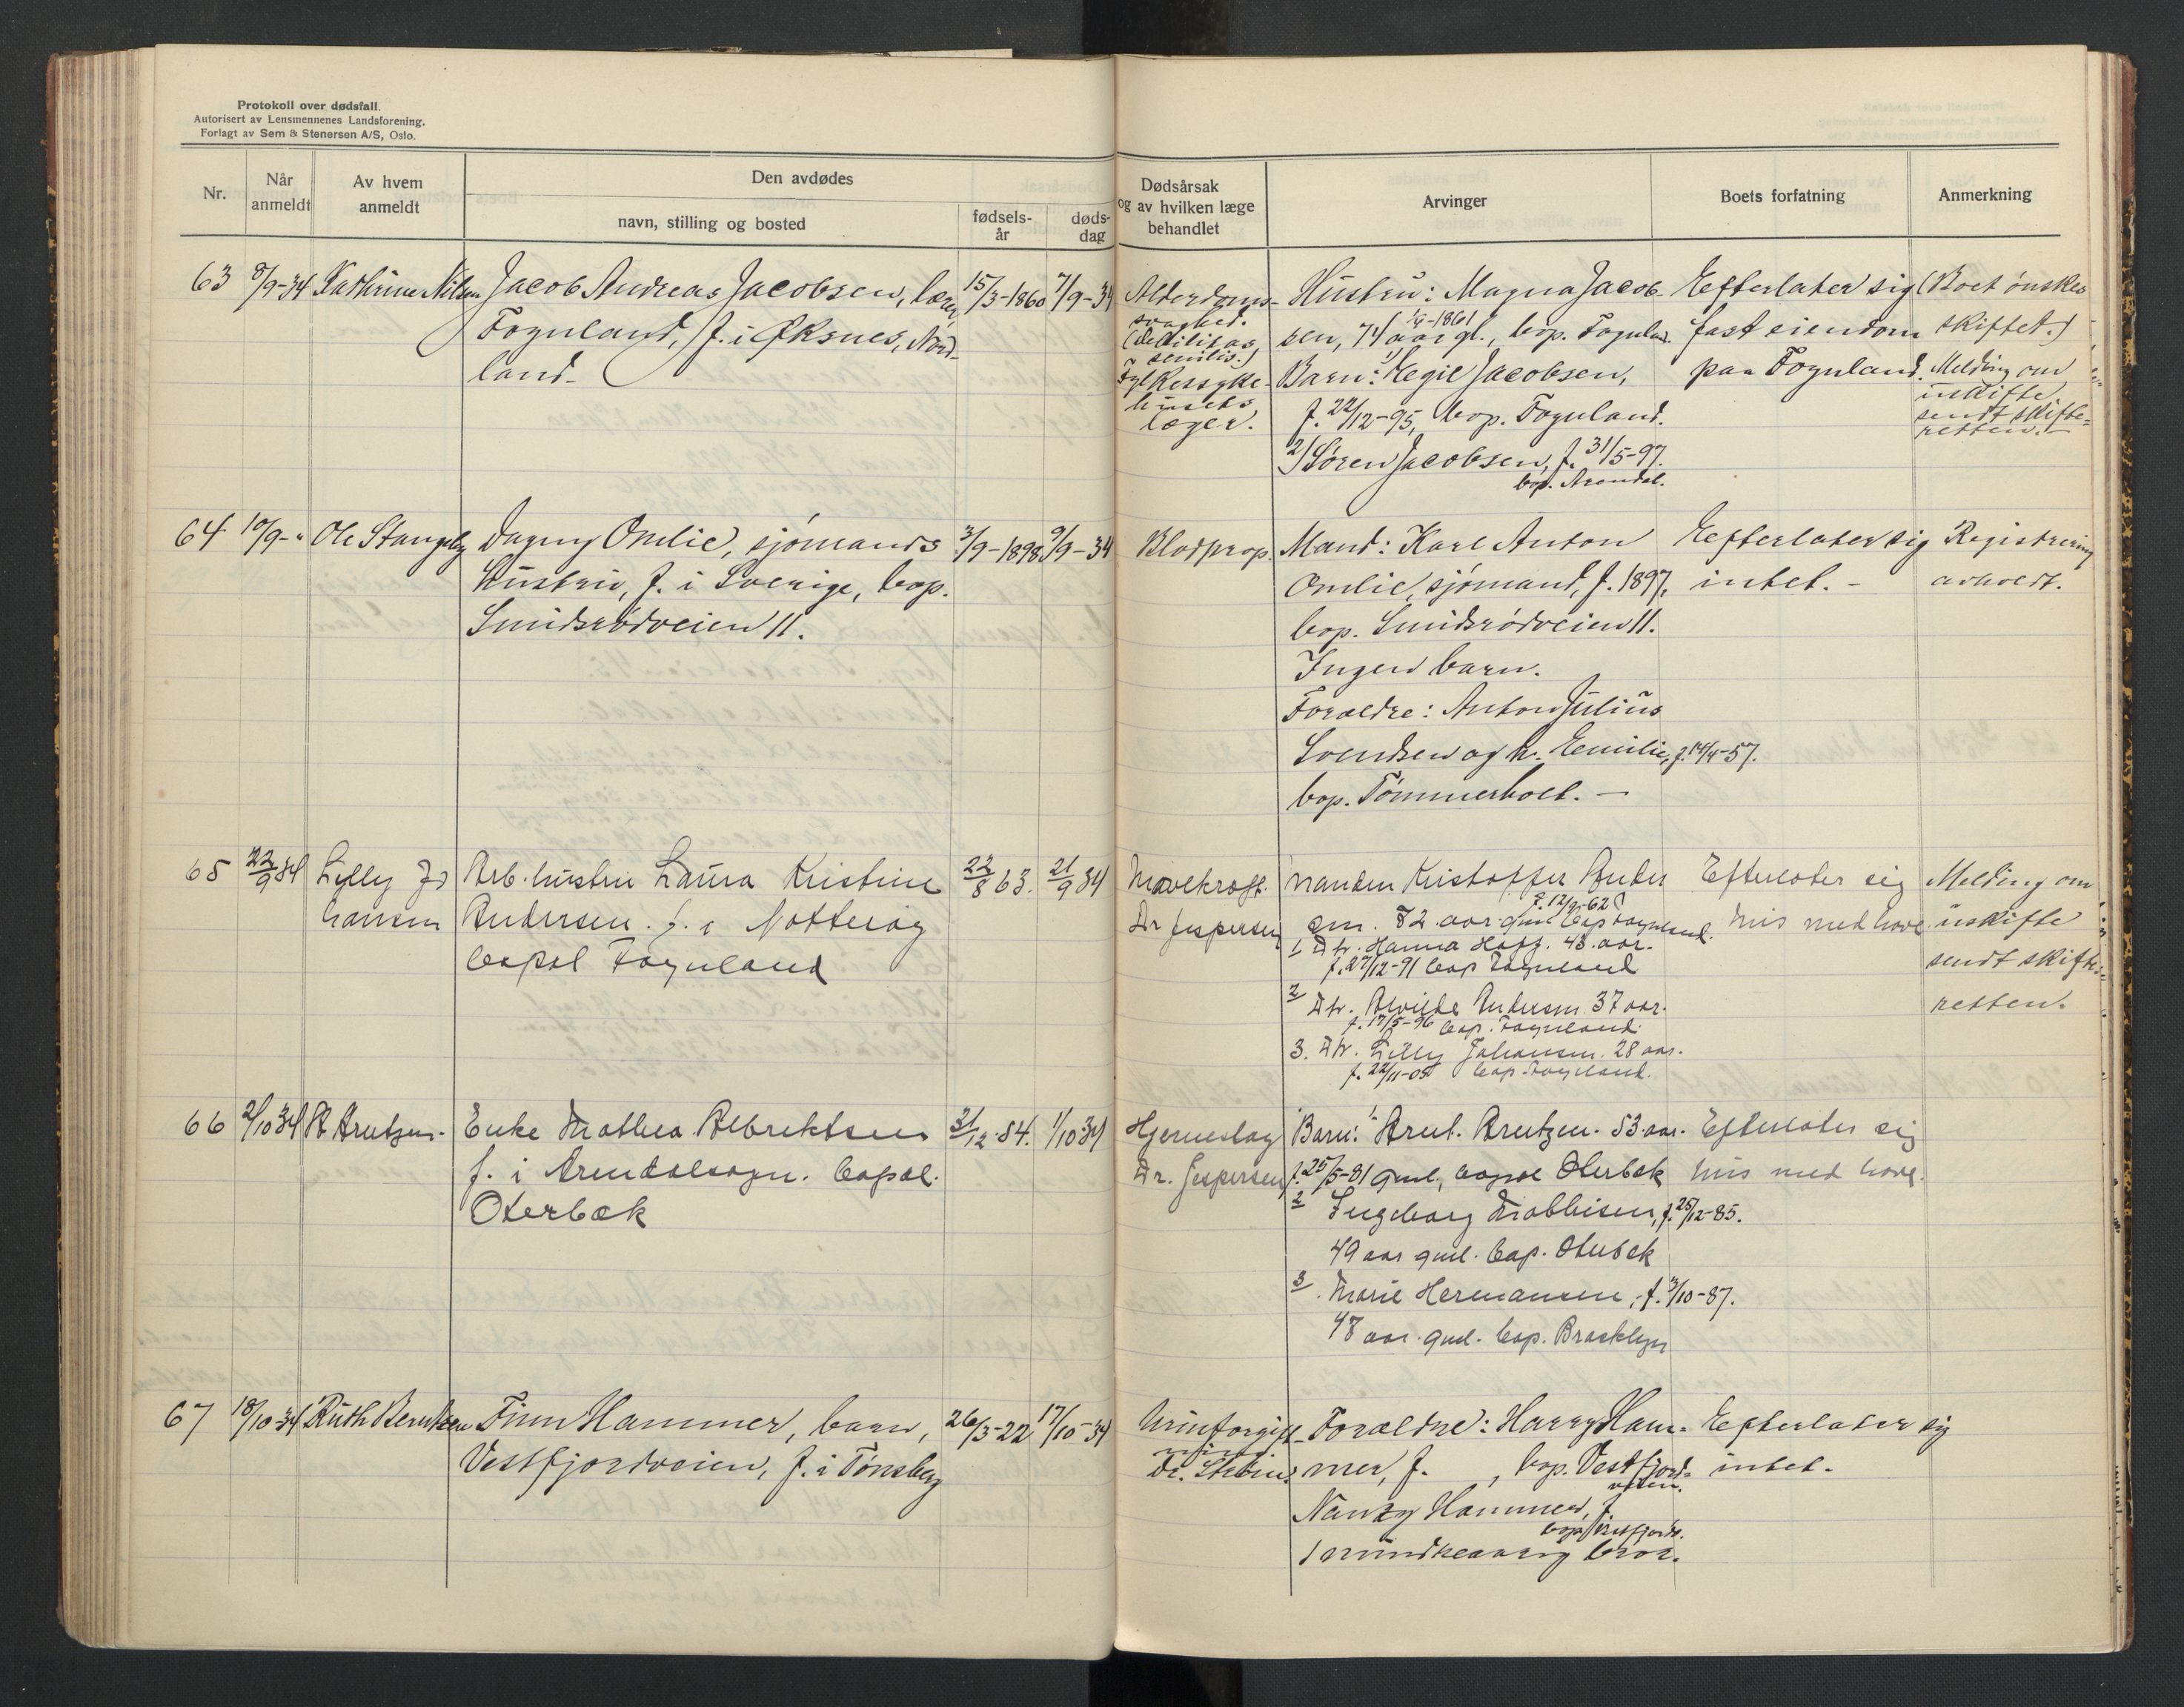 Protokoll over dødsfall.
Autorisert av Lensmennenes Landsforening.
Forlagt av Sem & Stenersen A/S, Oslo.
Nr.
Når
anmeldt
Av hvem
anmeldt
Den avdødes
navn, stilling og bosted
fødsels-
år
døds-
dag
Dødsårsak
og av hvilken læge
behandlet
Arvinger
Boets forfatning
Anmerkning
63 8/9-34 Kathrine Nilsen Jacob Andreas Jacobsen, lærer, 15/3-1860 7/9-34
Fognland, f. i Øksnes, Nord-
land.
Alderdoms-
svaghed.
(debilitas
senilis.)
Fylkessyke-
husets
læger.
Hustru: Magna Jacob-
1/4-1861
sen, 74 aar gl., bop. Fognland.
Barn: 1) Hegil Jacobsen,
f. 22/12-95, bop. Fognland.
2) Søren Jacobsen, f. 31/5-97.
bop. Arendal.
Efterlater sig
fast eiendom
paa Fognland.
(Boet ønskes
skiftet.)
Melding om
uskifte
sendt skifte-
retten.-
64 10/9-" Ole Stangeby Dagny Omlie, sjømands 3/9-1898 9/9-34
hustru, f. i Sverige, bop.
Smidsrødveien 11.
Blodprop.
Mand: Karl Anton
Omlie, sjømand, f. 1897,
bop. Smidsrødveien 11.
Ingen barn.
Forældre: Anton Julius
Svendsen og h. Emilie, f. 14/4-57.
bop. Tømmerholt. -
Efterlater sig
intet. -
Registrering
avholdt.
65 22/9 34 Lilly Jo Arb. hustru Laura Kristine 22/8 63. 21/9 34
hansen Andersen. f. i Nøtterøy
bopel Fognland
Mavekræft.
Dr Jespersen
Manden Kristoffer Ander
f. 12/9-62
sen. 72 aar gml bop Fognland.
1 Dtr. Hanna Hoff. 43 aar.
f. 27/12-91 bop Fognland
2 Dtr. Alvilde Andersen 37 aar.
f. 17/5-96 bop. Fognland.
3. Dtr. Lilly Johansen. 28 aar.
f. 22/11-05 bop. Fognland.
Efterlater sig
hus med have
Melding om
uskifte
sendt skifte-
retten.
66 2/10 34 A Arntzen. Enke Mathea Albrektsen 1/10.34
f. i Arendalsogn. bopæl.
Oterbæk
Hjerneslag
Dr. Jespersen
Barn: 1 Arnt. Arntzen. 53 aar.
f. 25/5-81 gml., bopæl Oterbek
2 Ingeborg Mathisen, f. 25/12-85.
49 aar gml. bop. Oterbek
3. Marie Hermansen, f. 3/10-87.
47 aar. gml. bop. Brooklyn
Efterlater sig
hus med have.
67 18/10-34 Ruth Berntzen Finn Hammer, barn, 26/3-22 17/10-34
Vestfjordveien, f. i Tønsberg
Urinforgift-
ning.
Dr.
Forældre: Harry Ham-
mer, f. , bop. Vestfjord-
veien.
Nanzy Hammer, f
bop. Vestfjordv.
1 mindreaarig bror.
Efterlater sig
intet.